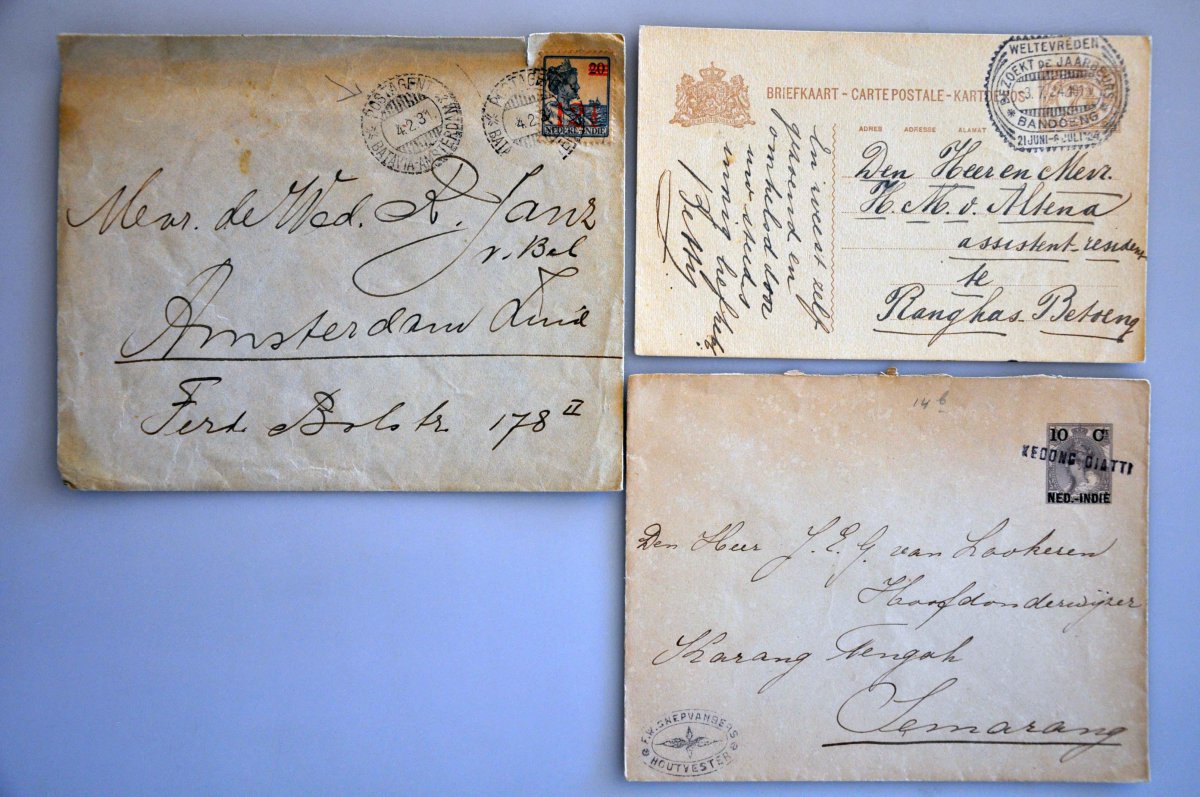 POSTAGENT
4.2.31
BATAVIA-AMSTERDAM
20
NEDERL-INDIE
Mevr. de Wed. R. Janz
v. Bel
Amsterdam Zuid
Ferd Bolstr 178 II
BRIEFKAART - CARTE POSTALE - KARTOE POS
ADRES ADRESSE ALAMAT
WELTEVREDEN
BEZOEKT DE JAARBEURS
BANDOENG
21 JUNI-6 JULI '24
Den Heer en Mevr.
H. M. v. Altena
assistent-resident
te
Rangkas-Betoeng
En weest zelf
gezoend en
omhelsd door
uw steeds
innig liefheb.
Betty
14 b
10 Ct
KEDONG DJATTI
NED.-INDIË
Den Heer J. E. G. van Lookeren
Hoofdonderwijzer
Karang Tengah
Semarang
F.W. SNEPVANGERS
HOUTVESTER